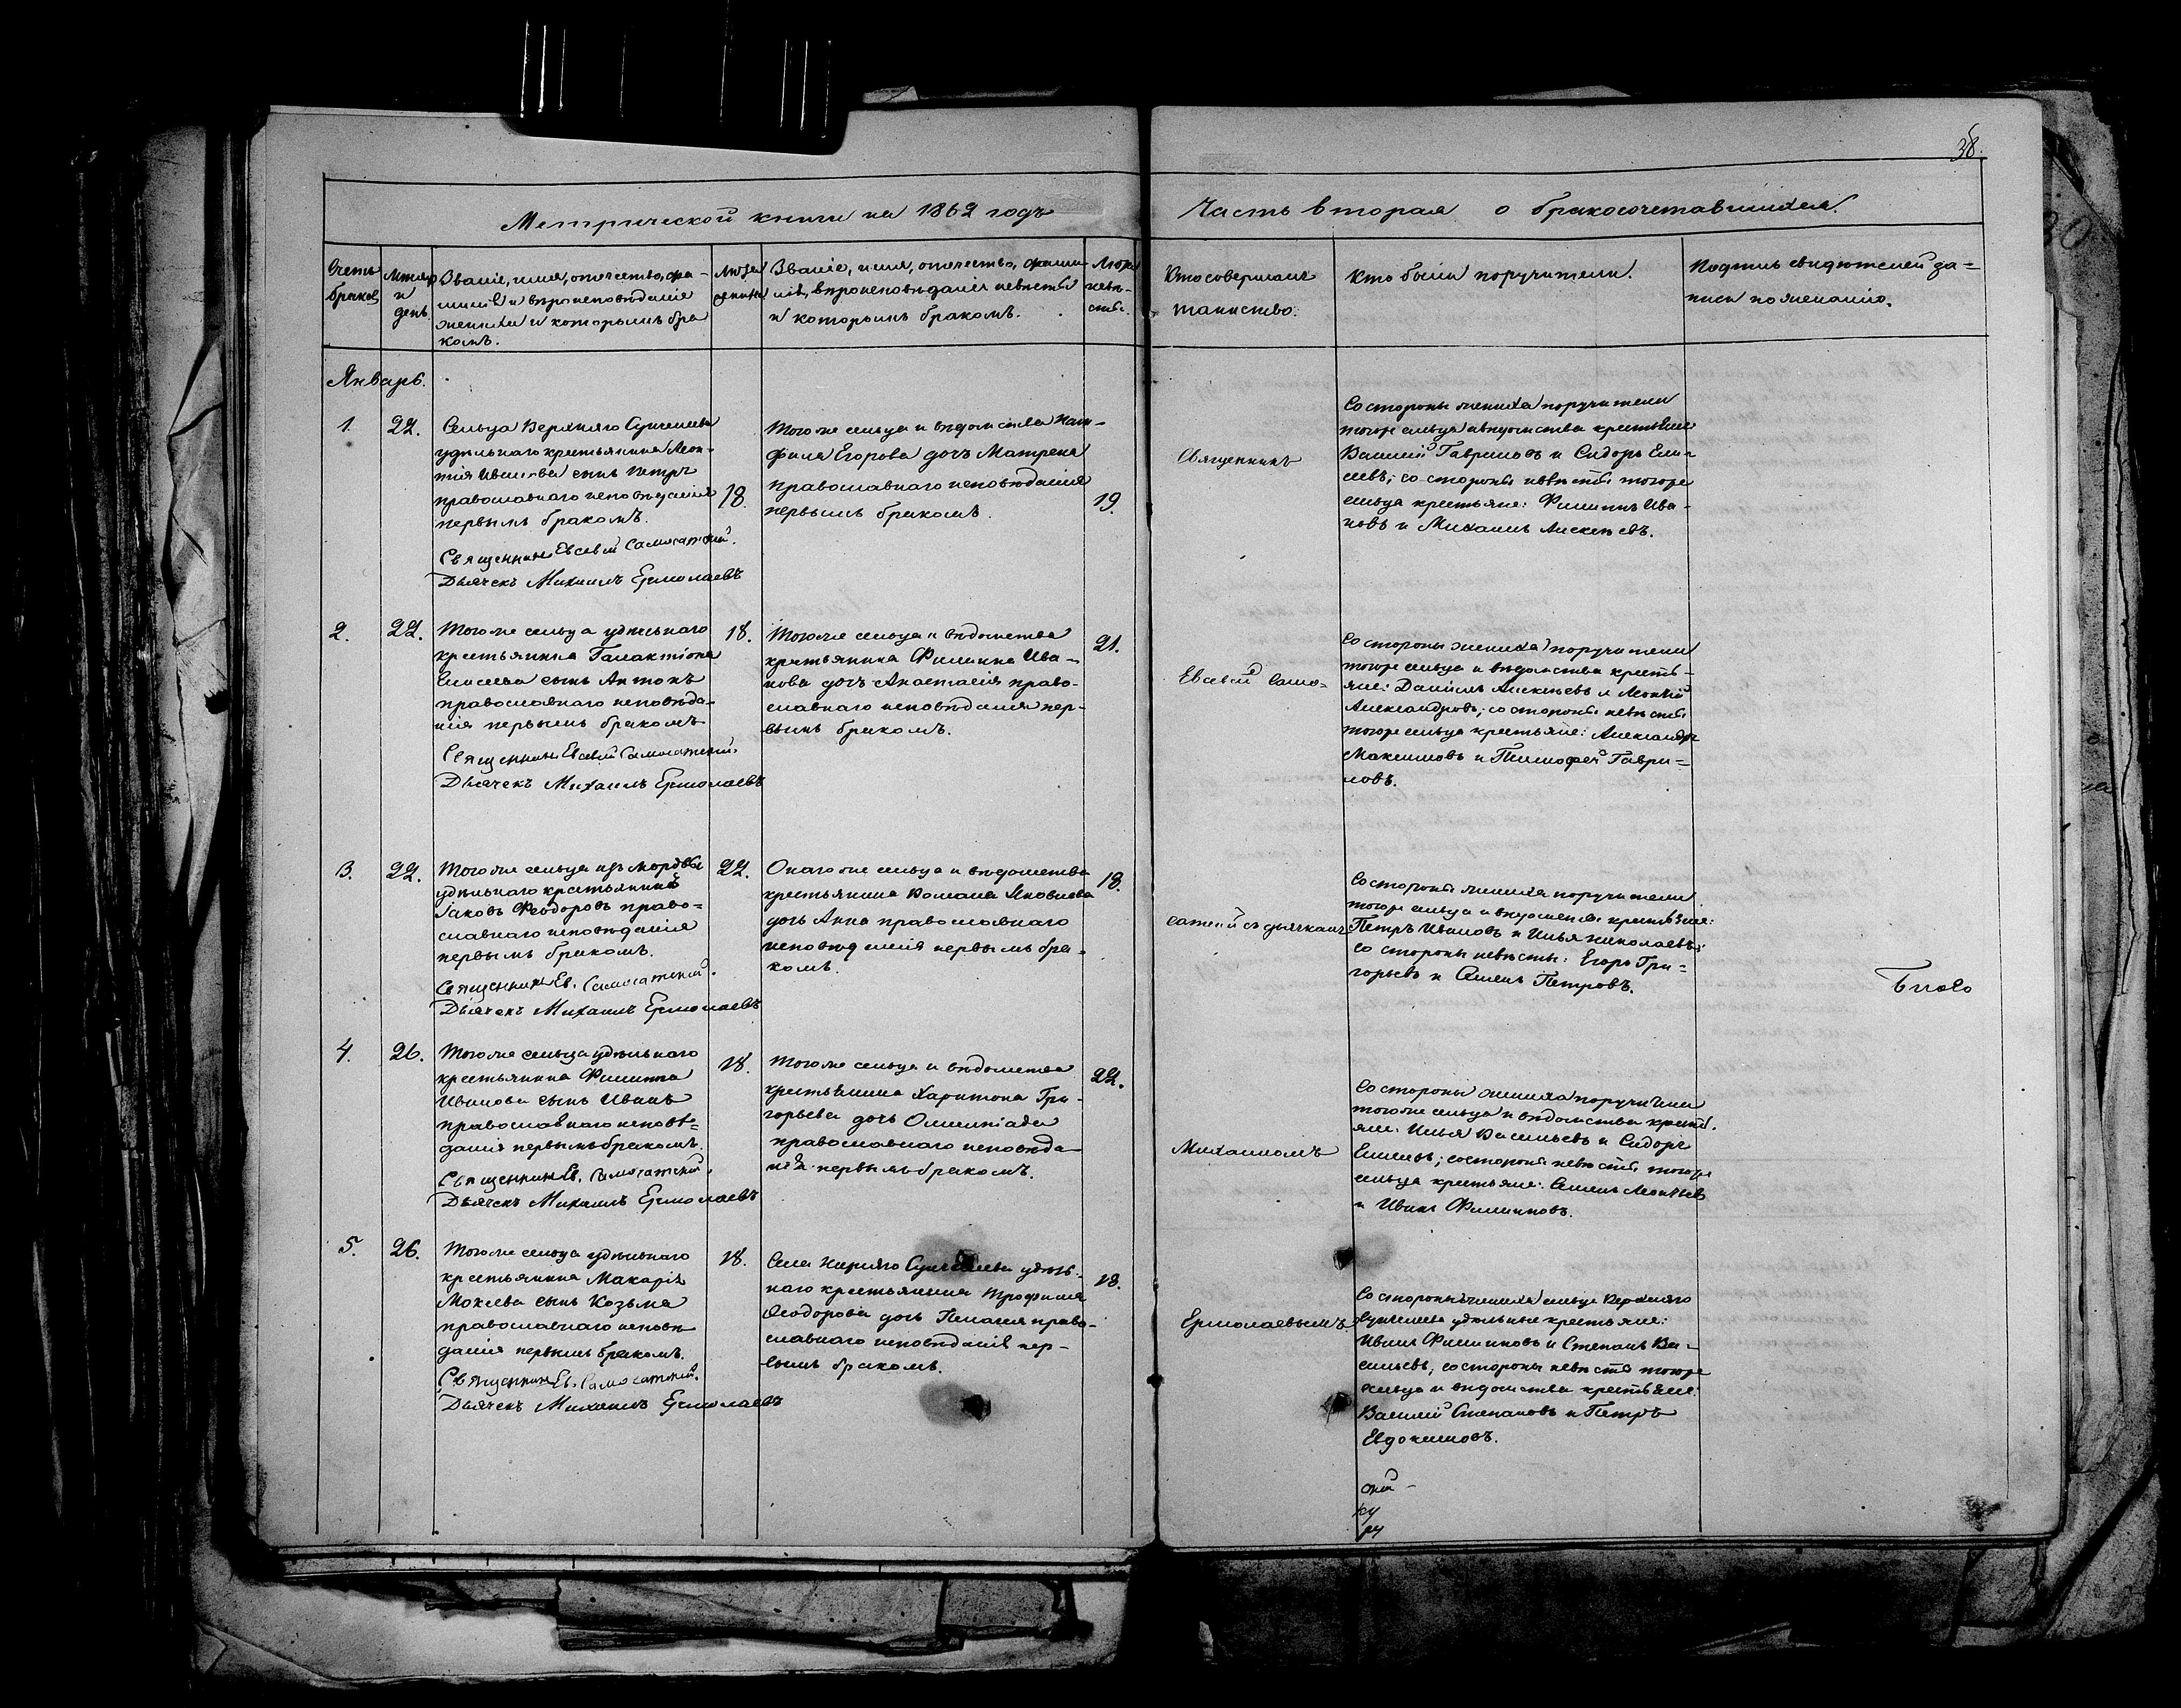 38.
Метрической книги на 1862 годъ
Часть вторая о бракосочетавшихся.
Счетъ браковъ
Мѣсяцъ и день.
Званіе, имя, отечество, фа-
милія и вѣроисповѣданіе
жениха и которымъ бра
комъ.
Лѣта жениха
Званіе, имя, отечество, фами
лія, вѣроисповѣданіе невѣсты
и которымъ бракомъ.
Лѣта невѣ-
сты.
Кто совершалъ
таинство.
Кто были поручители.
Подпись свидѣтелей за=
писи по желанію.
Январь.
1.
22.
Сельца Верхняго
удѣльнаго крестьянина Леон-
тія Иванова сынъ Петръ
православнаго исповѣданія
первымъ бракомъ.
Священникъ Евсевій Самосатскій.
Дьячекъ Михаилъ Ермолаевъ
18.
Того же сельца и вѣдомства Пам-
фила Егорова дочь Матрена
православнаго исповѣданія
первымъ бракомъ.
19.
Священникъ
Со стороны жениха поручители
тогоже сельца и вѣдомства крестьяне
Василій Гавриловъ и Сидоръ Ели-
сеевъ; со стороны невѣсты тогоже
сельца крестьяне: Филиппъ Ива-
новъ и Михаилъ Алексѣевъ.
2.
22.
Того же сельца удѣльнаго
крестьянина Галактіона
Елисеева сынъ Антонъ
православнаго исповѣда-
нія первымъ бракомъ
Священникъ Евсевій Самосатскій.
Дьячекъ Михаилъ Ермолаевъ
18.
Того же сельца и вѣдомства
крестьянина Филиппа Ива-
нова дочь Анастасія право-
славнаго исповѣданія пер-
вымъ бракомъ.
21.
Евсевій Само-
Со стороны жениха поручители
тогоже сельца и вѣдомства кресть-
яне: Даніилъ Алексѣевъ и Леонтій
Александровъ; со стороны невѣсты
тогоже сельца крестьяне: Александръ
Максимовъ и Тимофей Гаври=
ловъ.
3.
22.
Того же сельца изъ мордвы
удѣльнаго крестьянина
Іаковъ Ѳеодоровъ право=
славнаго исповѣданія
первымъ бракомъ.
Священникъ Ев. Самосатскій.
Дьячекъ Михаилъ Ермолаевъ
22.
Онаго же сельца и вѣдомства
крестьянина Романа Яковлева
дочь Анна православнаго
исповѣданія первымъ бра-
комъ.
18.
сатскій съ дьячкомъ
Со стороны жениха поручители
тогоже сельца и вѣдомства крестьяне:
Петръ Ивановъ и Илья Николаевъ;
со стороны невѣсты: Егоръ Гри=
горьевъ и Семенъ Петровъ.
4.
26.
Того же сельца удѣльнаго
крестьянина Филиппа
Иванова сынъ Иванъ
православнаго исповѣ=
данія первымъ бракомъ.
Священникъ Ев. Самосатскій.
Дьячекъ Михаилъ Ермолаевъ
18.
Того же сельца и вѣдомства
крестьянина Харитона Гри-
горьева дочь Олимпіада
православнаго исповѣда-
нія первымъ бракомъ.
22.
Михаиломъ
Со стороны жениха поручители
того же сельца и вѣдомства кресть.
яне: Илья Васильевъ и Сидоръ
Елисеевъ; со стороны невѣсты тогоже
сельца крестьяне: Семенъ Леонтьевъ
и Иванъ Филипповъ.
5.
26.
Того же сельца удѣльнаго
крестьянина Макарія
Мокеева сынъ Козьма
православнаго исповѣ
данія первымъ бракомъ.
Священникъ Ев. Самосатскій.
Дьячекъ Михаилъ Ермолаевъ
18.
Села Нижняго удѣль-
наго крестьянина Трофима
Ѳеодорова дочь Пелагея право-
славнаго исповѣданія пер-
вымъ бракомъ.
18.
Ермолаевымъ.
Со стороны жениха сельца Верхняго
удѣльные крестьяне:
Иванъ Филипповъ и Степанъ Ва-
сильевъ, со стороны невѣсты тогоже
сельца и вѣдомства крестьяне:
Василій Степановъ и Петръ
Евдокимовъ.
ской -
ку
ру